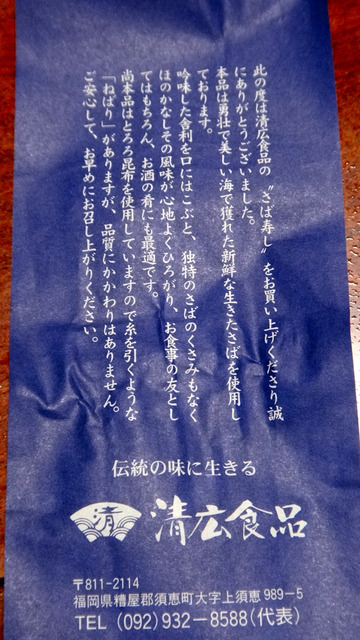 此の度は清広食品の〝さば寿し〟をお買い上げくださり誠
にありがとうございました。
本品は勇壮で美しい海で獲れた新鮮な生きたさばを使用し
ております。
吟味した舎利を口にはこぶと、独特のさばのくさみもなく
ほのかなしその風味が心地よくひろがり、お食事の友とし
てはもちろん、お酒の肴にも最適です。
尚本品はとろろ昆布を使用していますので糸を引くような
「ねばり」がありますが、品質にかかわりはありません。
ご安心して、お早めにお召し上がりください。
伝統の味に生きる
清
清広食品
〒811-2114
福岡県糟屋郡須恵町大字上須恵989−5
TEL (092)932−8588(代表)